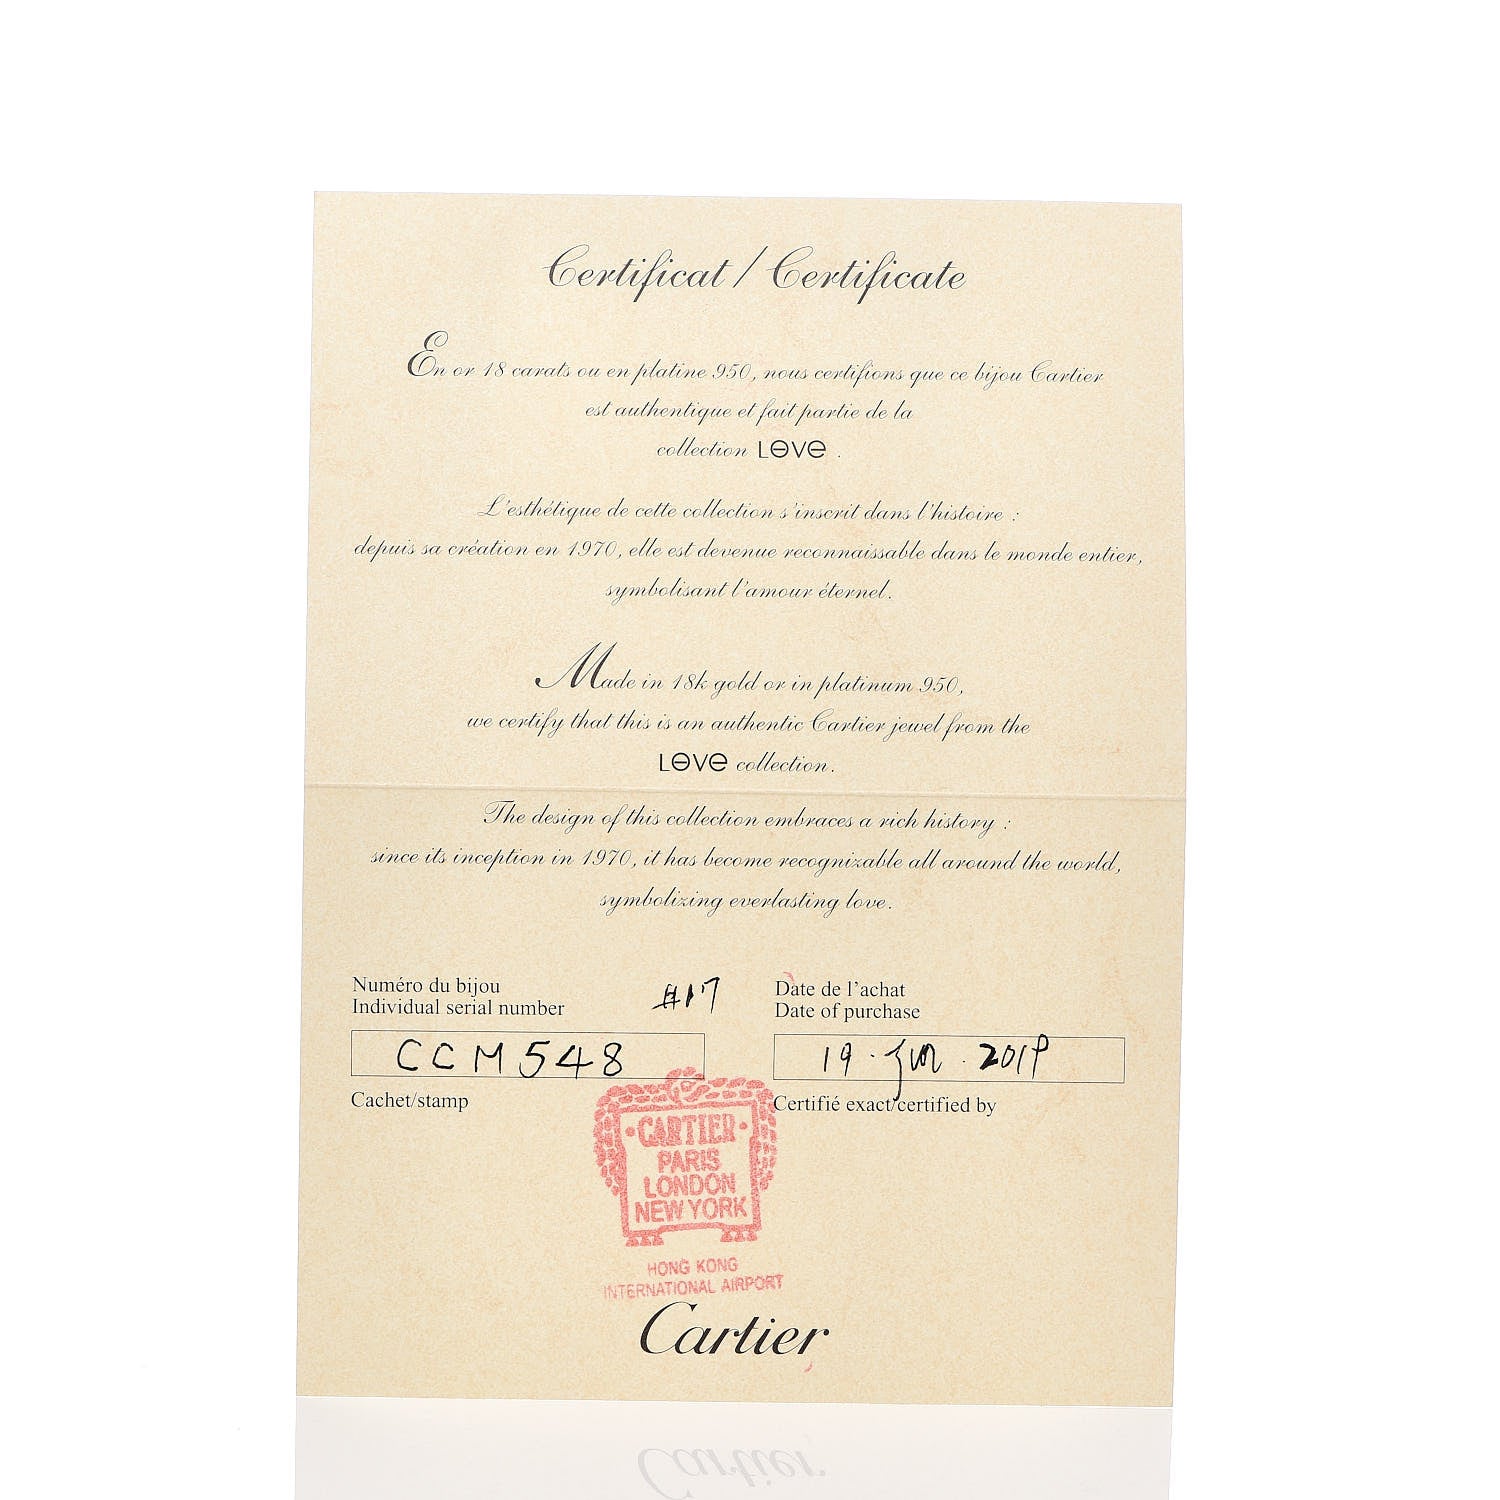 Certificat / Certificate
En or 18 carats ou en platine 950, nous certifions que ce bijou Cartier
est authentique et fait partie de la
collection LOVE .
L'esthétique de cette collection s'inscrit dans l'histoire :
depuis sa création en 1970, elle est devenue reconnaissable dans le monde entier,
symbolisant l'amour éternel.
Made in 18k gold or in platinum 950,
we certify that this is an authentic Cartier jewel from the
LOVE collection.
The design of this collection embraces a rich history :
since its inception in 1970, it has become recognizable all around the world,
symbolizing everlasting love.
Numéro du bijou
Individual serial number
#17
CCM548
Cachet/stamp
Date de l'achat
Date of purchase
19 . Jun . 2019
Certifié exact/certified by
·CARTIER·
PARIS
LONDON
NEW YORK
HONG KONG
INTERNATIONAL AIRPORT
Cartier